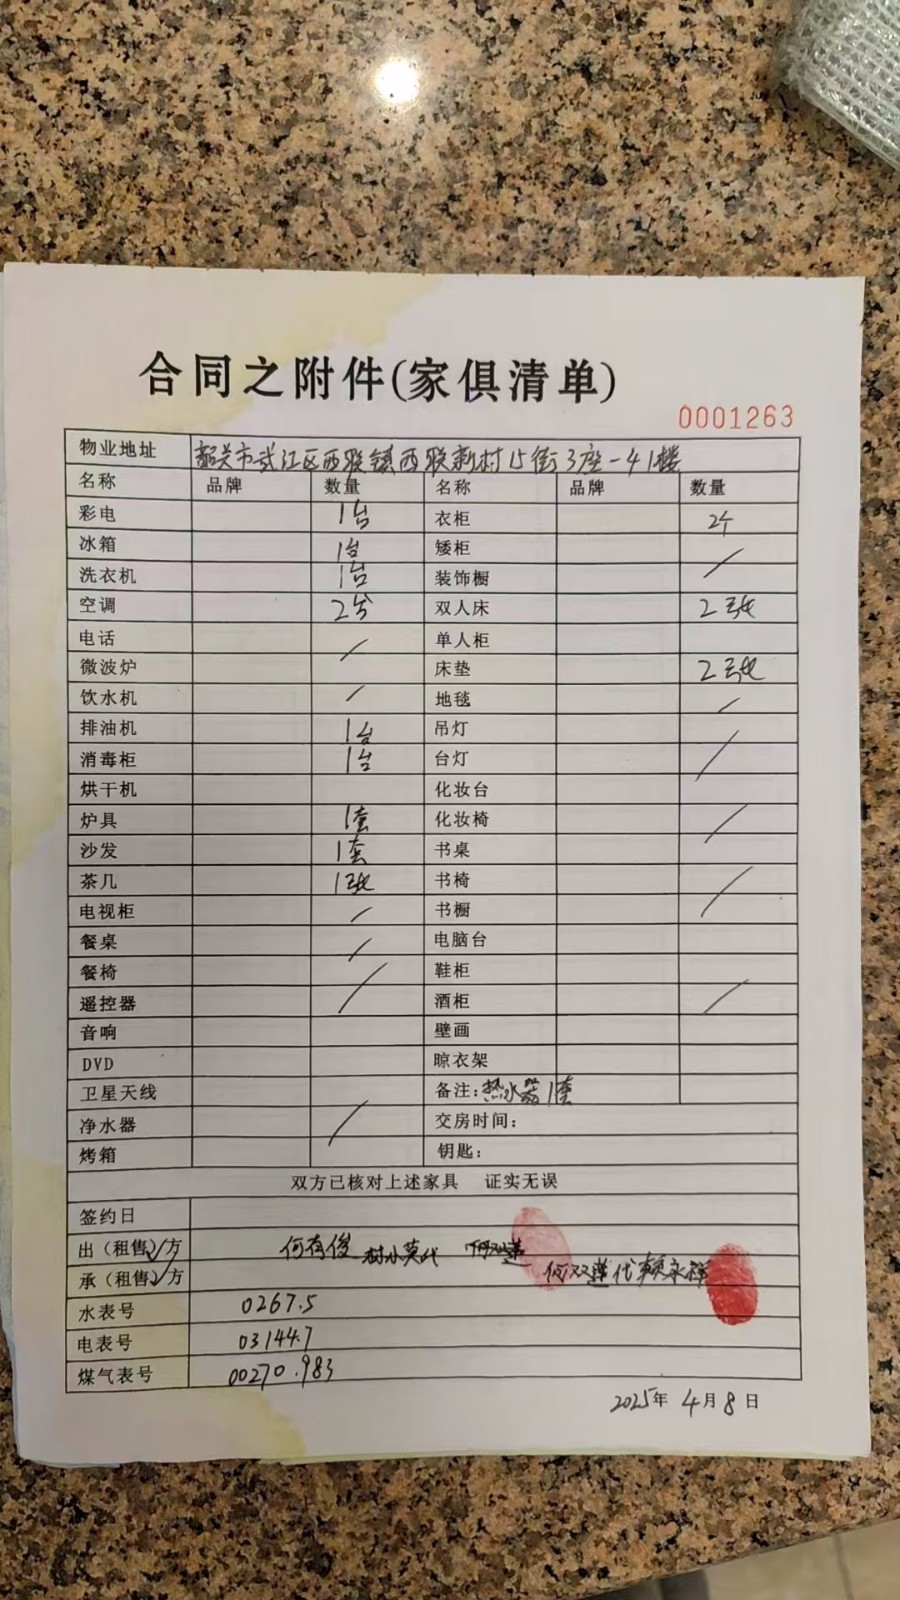 合同之附件(家俱清单)
0001263
物业地址 韶关市武江区西联镇西联新村15街3座-41楼
名称 品牌 数量 名称 品牌 数量
彩电 1台 衣柜 2个
冰箱 1台 矮柜
洗衣机 1台 装饰橱 /
空调 2台 双人床 2张
电话 / 单人柜
微波炉 床垫 2张
饮水机 / 地毯 /
排油机 1台 吊灯
消毒柜 1台 台灯 /
烘干机 化妆台
炉具 1套 化妆椅 /
沙发 1套 书桌
茶几 1张 书椅 /
电视柜 / 书橱
餐桌 / 电脑台
餐椅 / 鞋柜
遥控器 酒柜 /
音响 壁画
DVD 晾衣架
卫星天线 备注:热水器1套
净水器 / 交房时间:
烤箱 钥匙:
双方已核对上述家具 证实无误
签约日
出（租售）✓方 何有俊
承（租售）✓方 何双莲代赖永祥
水表号 0267.5
电表号 03144.7
煤气表号 00270.983
2025年 4月8日